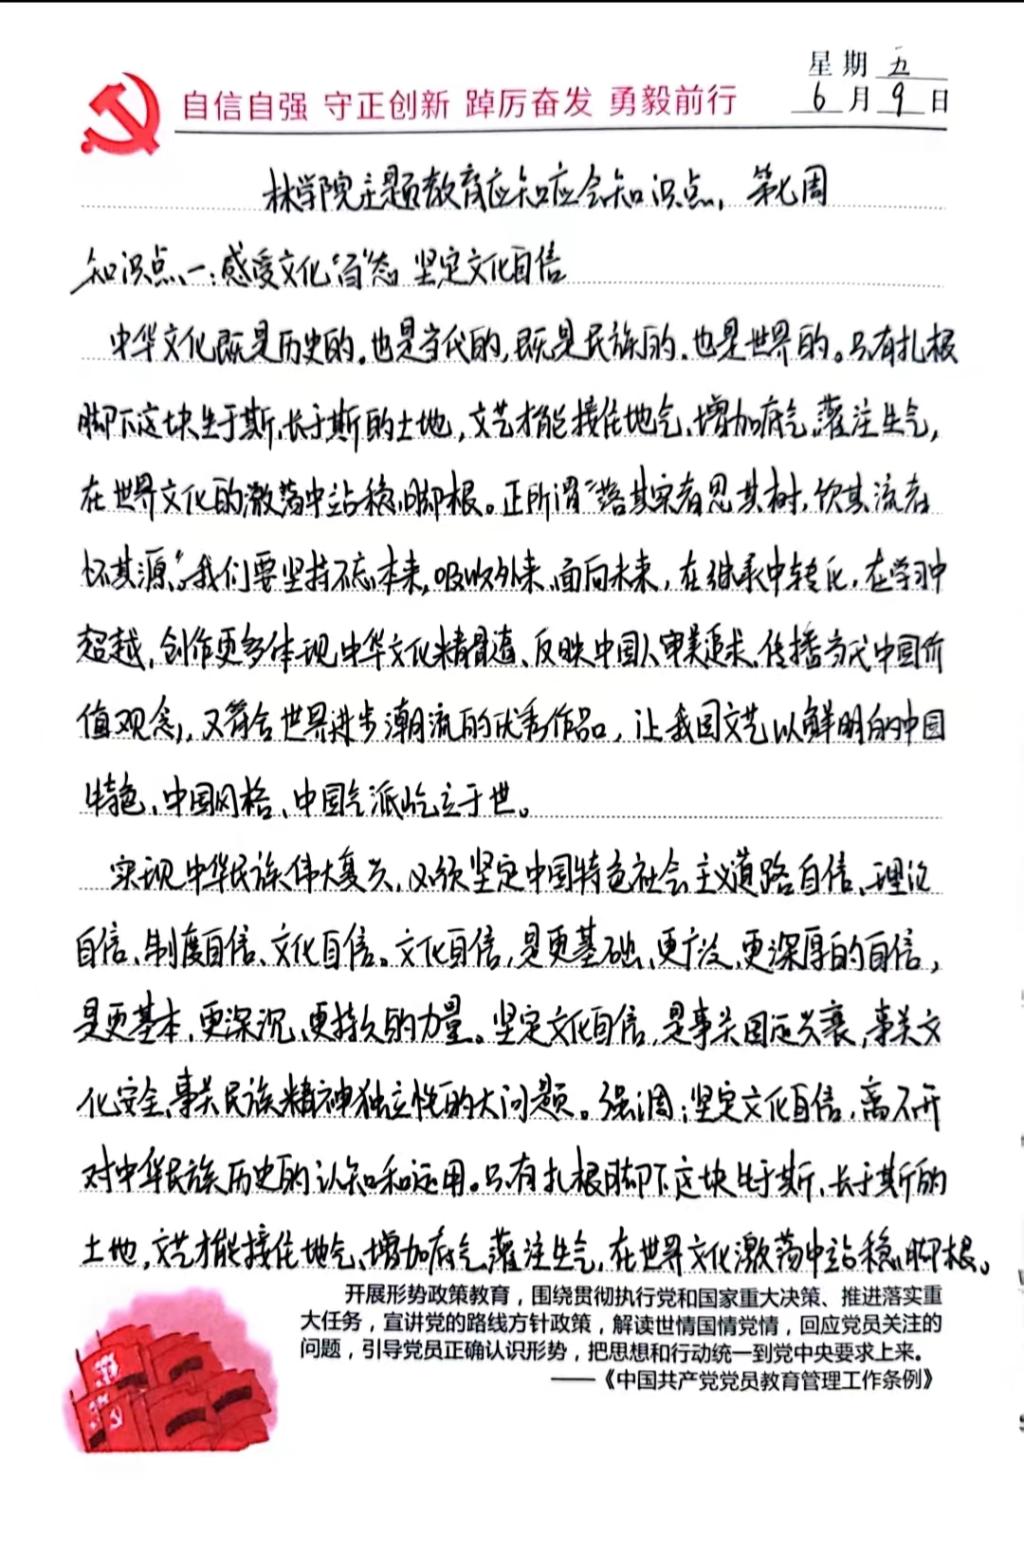 星期五
自信自强 守正创新 踔厉奋发 勇毅前行
6月9日
林学院主题教育应知应会知识点，第七周
知识点一：感受文化“百”态 坚定文化自信
中华文化既是历史的，也是当代的，既是民族的，也是世界的。只有扎根
脚下这块生于斯、长于斯的土地，文艺才能接住地气、增加底气、灌注生气，
在世界文化的激荡中站稳脚根。正所谓“落其实者思其树，饮其流者
怀其源”。我们要坚持不忘本来，吸收外来、面向未来，在继承中转化，在学习中
超越，创作更多体现中华文化精髓、反映中国人审美追求、传播当代中国价
值观念，又符合世界进步潮流的优秀作品，让我国文艺以鲜明的中国
特色、中国风格、中国气派屹立于世。
实现中华民族伟大复兴，必须坚定中国特色社会主义道路自信、理论
自信、制度自信、文化自信。文化自信，是更基础、更广泛、更深厚的自信，
是更基本、更深沉、更持久的力量。坚定文化自信，是事关国运兴衰，事关文
化安全、事关民族精神独立性的大问题。强调：坚定文化自信，离不开
对中华民族历史的认知和运用。只有扎根脚下这块生于斯、长于斯的
土地，文艺才能接住地气、增加底气、灌注生气，在世界文化激荡中站稳脚根。
开展形势政策教育，围绕贯彻执行党和国家重大决策、推进落实重
大任务，宣讲党的路线方针政策，解读世情国情党情，回应党员关注的
问题，引导党员正确认识形势，把思想和行动统一到党中央要求上来。
——《中国共产党党员教育管理工作条例》